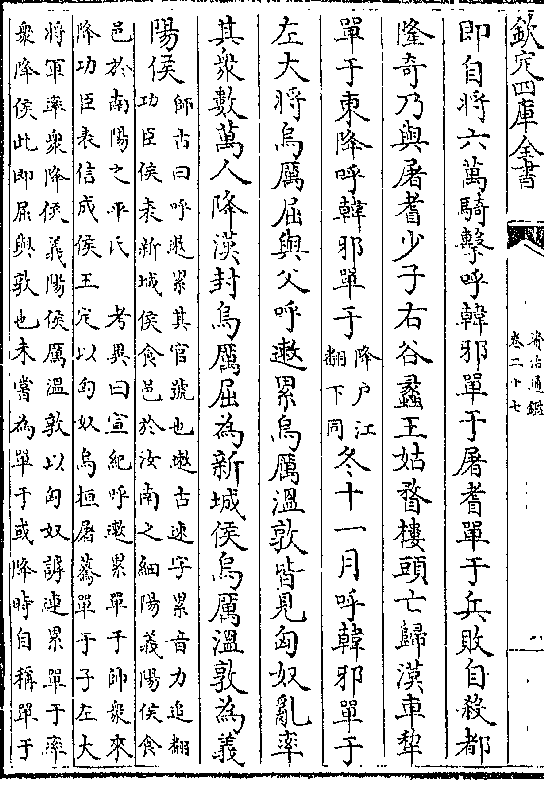 欽定四庫全書
資治通鑑
卷二十七
八
即自將六萬騎擊呼韓邪單于屠耆單于兵敗自殺都
隆奇乃與屠耆少子右谷蠡王姑瞀樓頭亡歸漢車犁
單于東降呼韓邪單于降户江翻下同冬十一月呼韓邪單于
左大將烏厲屈與父呼遬累烏厲溫敦皆見匈奴亂率
其衆數萬人降漢封烏厲屈為新城侯烏厲溫敦為義
陽侯師古曰呼遬累其官號也遬古速字累音力追翻
功臣侯表新城侯食邑於汝南之細陽義陽侯食
邑於南陽之平氏　考異曰宣紀呼遬累單于帥衆來
降功臣表信成侯王定以匈奴烏桓屠驀單于子左大
將軍率衆降侯義陽侯厲溫敦以匈奴謼連累單于率
衆降侯此即屈與敦也未嘗為單于或降時自稱單于